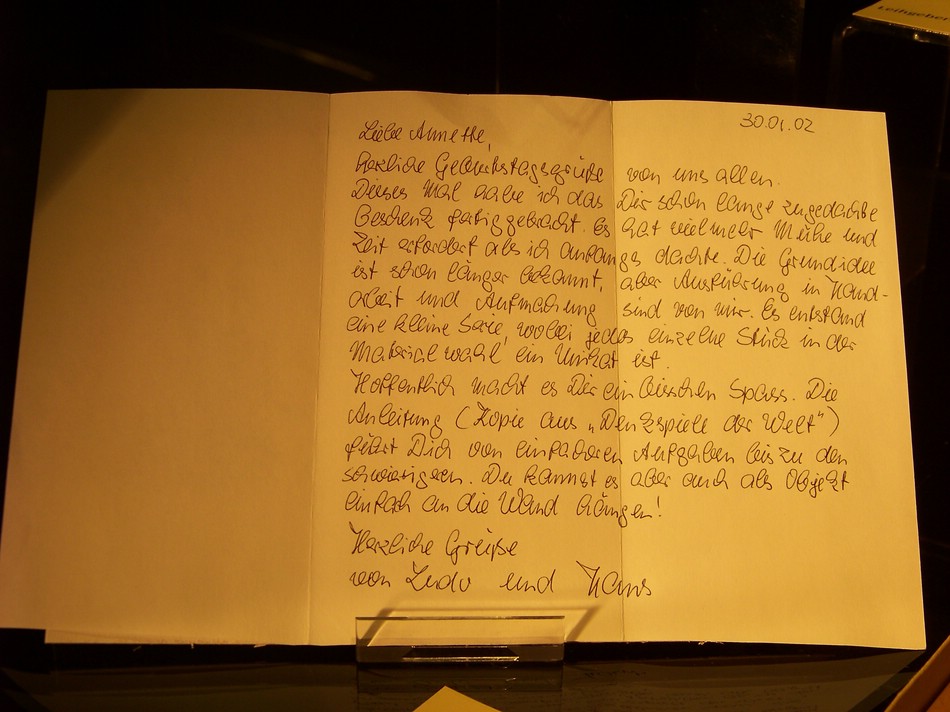 Leihgeber
30.01.02
Liebe Annette,
herzliche Geburtstagsgrüße von uns allen.
Dieses Mal habe ich das Dir schon lange zugedachte
Geschenk fertig gebracht. Es hat viel mehr Mühe und
Zeit erfordert als ich anfangs dachte. Die Grundidee
ist schon länger bekannt, aber Ausführung in Hand-
arbeit und Aufmachung sind von mir. Es entstand
eine kleine Serie, wobei jedes einzelne Stück in der
Materialwahl ein Unikat ist.
Hoffentlich macht es Dir ein bisschen Spass. Die
Anleitung (Kopie aus „Denkspiele der Welt")
führt Dich von einfacheren Aufgaben bis zu den
schwierigeren. Du kannst es aber auch als Objekt
einfach an die Wand hängen!
Herzliche Grüße
von Ludo und Hans